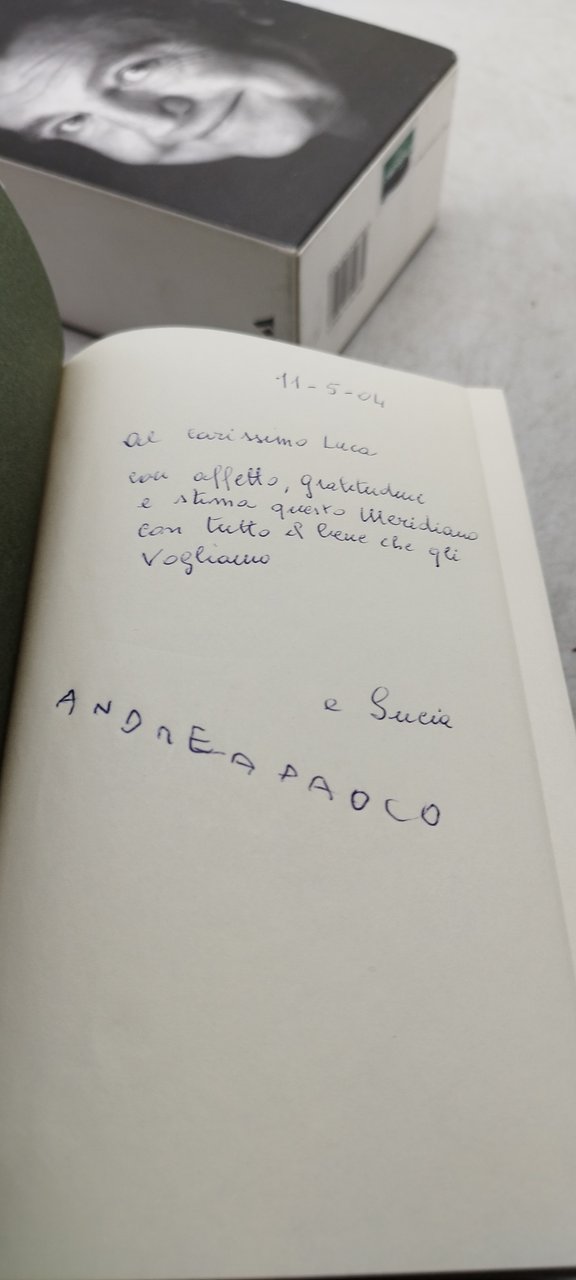 11-5-04
Al carissimo Luca
con affetto, gratitudine
e stima questo Meridiano
con tutto il bene che gli
vogliamo
e Lucia
ANDREA PAOLO